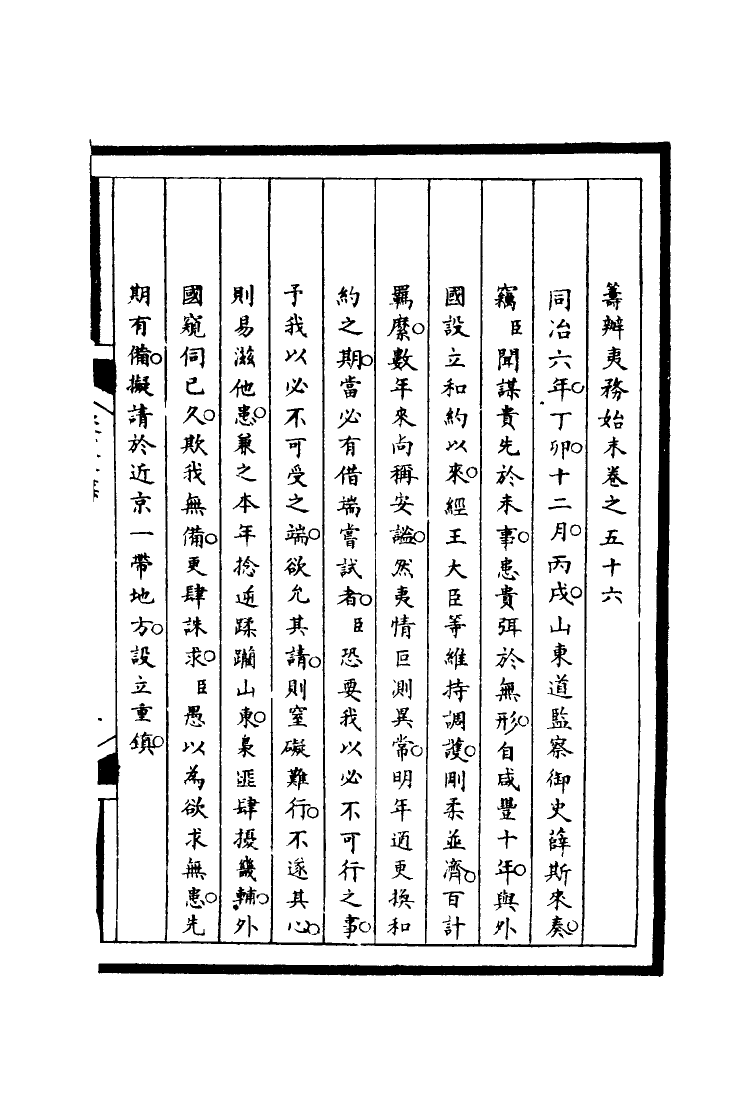 籌辦夷務始末卷之五十六
同治六年。丁卯。十二月。丙戌。山東道監察御史薛斯來奏。
竊臣聞謀貴先於未事。患貴弭於無形。自咸豐十年。與外
國設立和約以來。經王大臣等維持調護。剛柔並濟。百計
羈縻。數年來尚稱安謐。然夷情叵測異常。明年迺更換和
約之期。當必有借端嘗試者。臣恐要我以必不可行之事。
予我以必不可受之端。欲允其請。則窒礙難行。不遂其心。
則易滋他患。兼之本年捻逆蹂躪山東。梟匪肆擾畿輔。外
國窺伺已久。欺我無備。更肆誅求。臣愚以為欲求無患。先
期有備。擬請於近京一帶地方。設立重鎮。